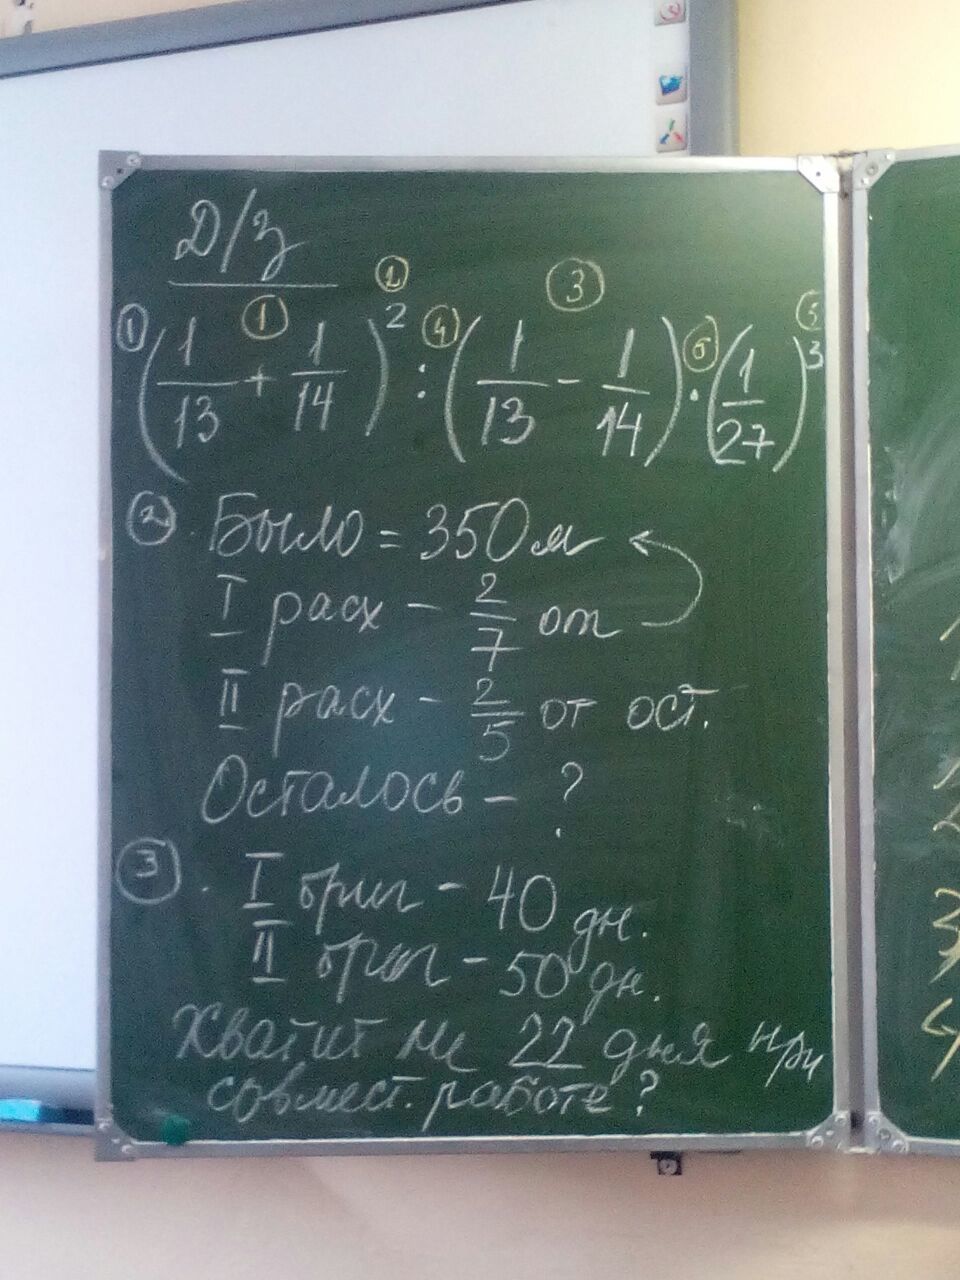 Д/з
① (1/13 + 1/14)² : (1/13 - 1/14) · (1/27)³
① ② ③ ④ ⑤ ⑥
② . Было = 350 м
I расх - 2/7 от
II расх - 2/5 от ост.
Осталось - ?
③ . I бриг - 40 дн.
II бриг - 50 дн.
Хватит ли 22 дня при
совмест. работе?